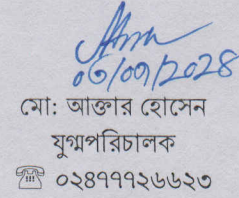 ০৩/০৭/২০২৪
মো: আক্তার হোসেন
যুগ্মপরিচালক
☎ ০২৪৭৭৭২৬৬২৩